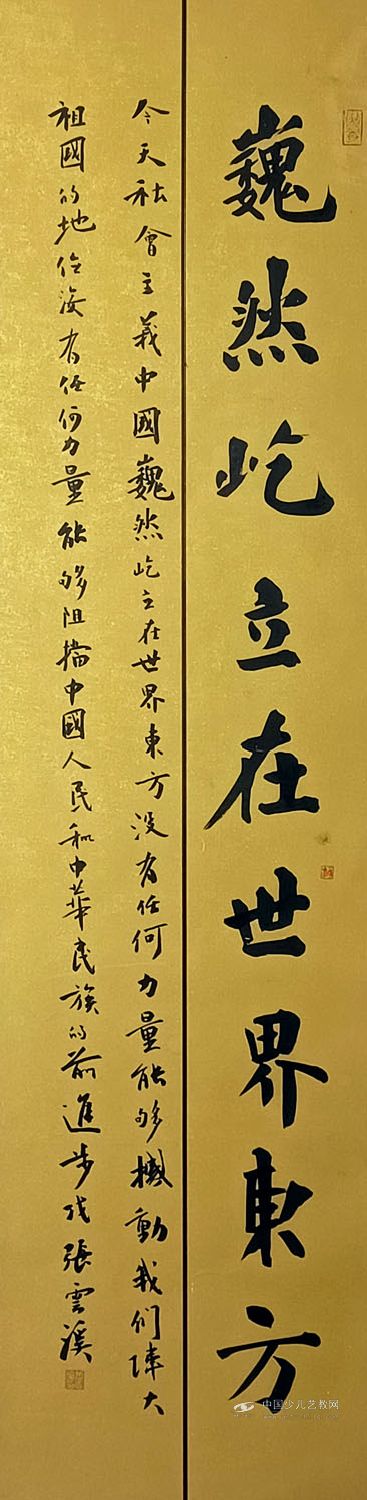 巍然屹立在世界東方
今天社會主義中國巍然屹立在世界東方没有任何力量能够撼動我们偉大
祖國的地位没有任何力量能够阻擋中國人民和中華民族的前進步伐張雲溪
中国少儿艺教网